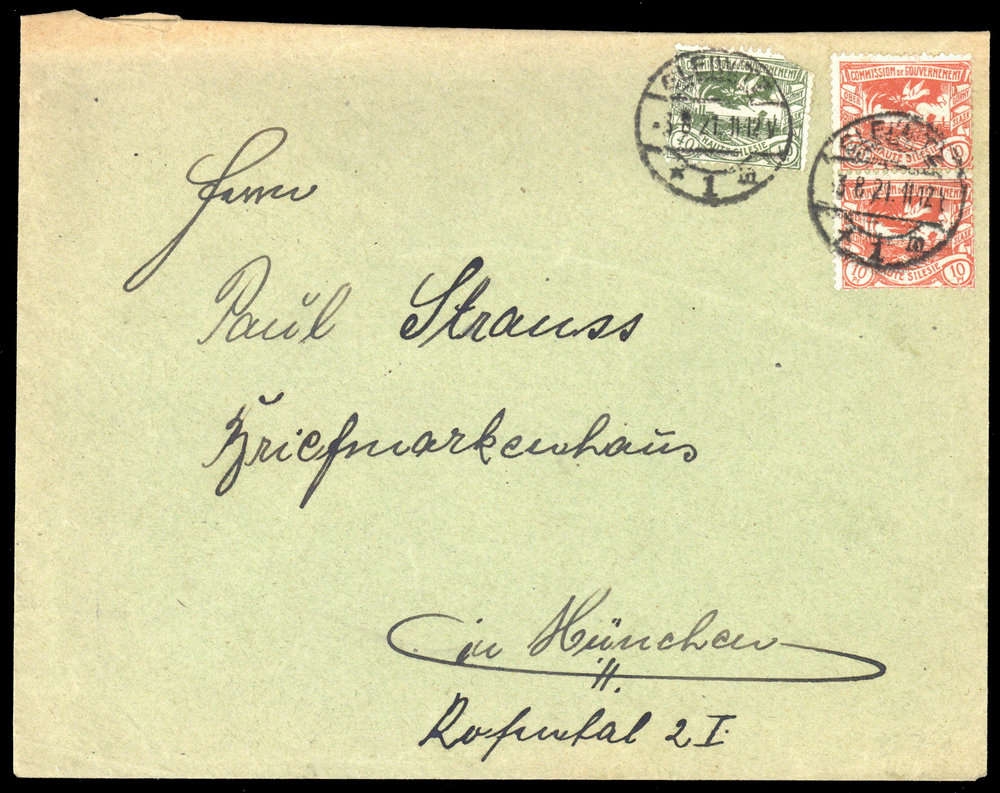 COMMISSION DE GOUVERNEMENT
HAUTE SILESIE
40
3.8.21.11-12V
* 1
COMMISSION DE GOUVERNEMENT
OBER
HAUTE SILESIE
10
3.8.21.11-12
1
HAUTE SILESIE
10 10
Herrn
Paul Strauss
Briefmarkenhaus
in München
2 I